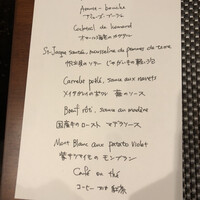 Amuse-bouche
アミューズ・ブーシュ
Cocktail de homard
オマール海老のカクテル
St-Jacque sautée, mousseline de pommes de terre
帆立貝のソテー じゃがいもの
Carrelet poêlé, sauce aux navets
メイタガレイのポワレ 蕪のソース
Bœuf rôti, sauce au madère
国産牛のロースト マデラソース
Mont Blanc aux patate violet
紫サツマイモのモンブラン
Café ou thé
コーヒー 又は 紅茶